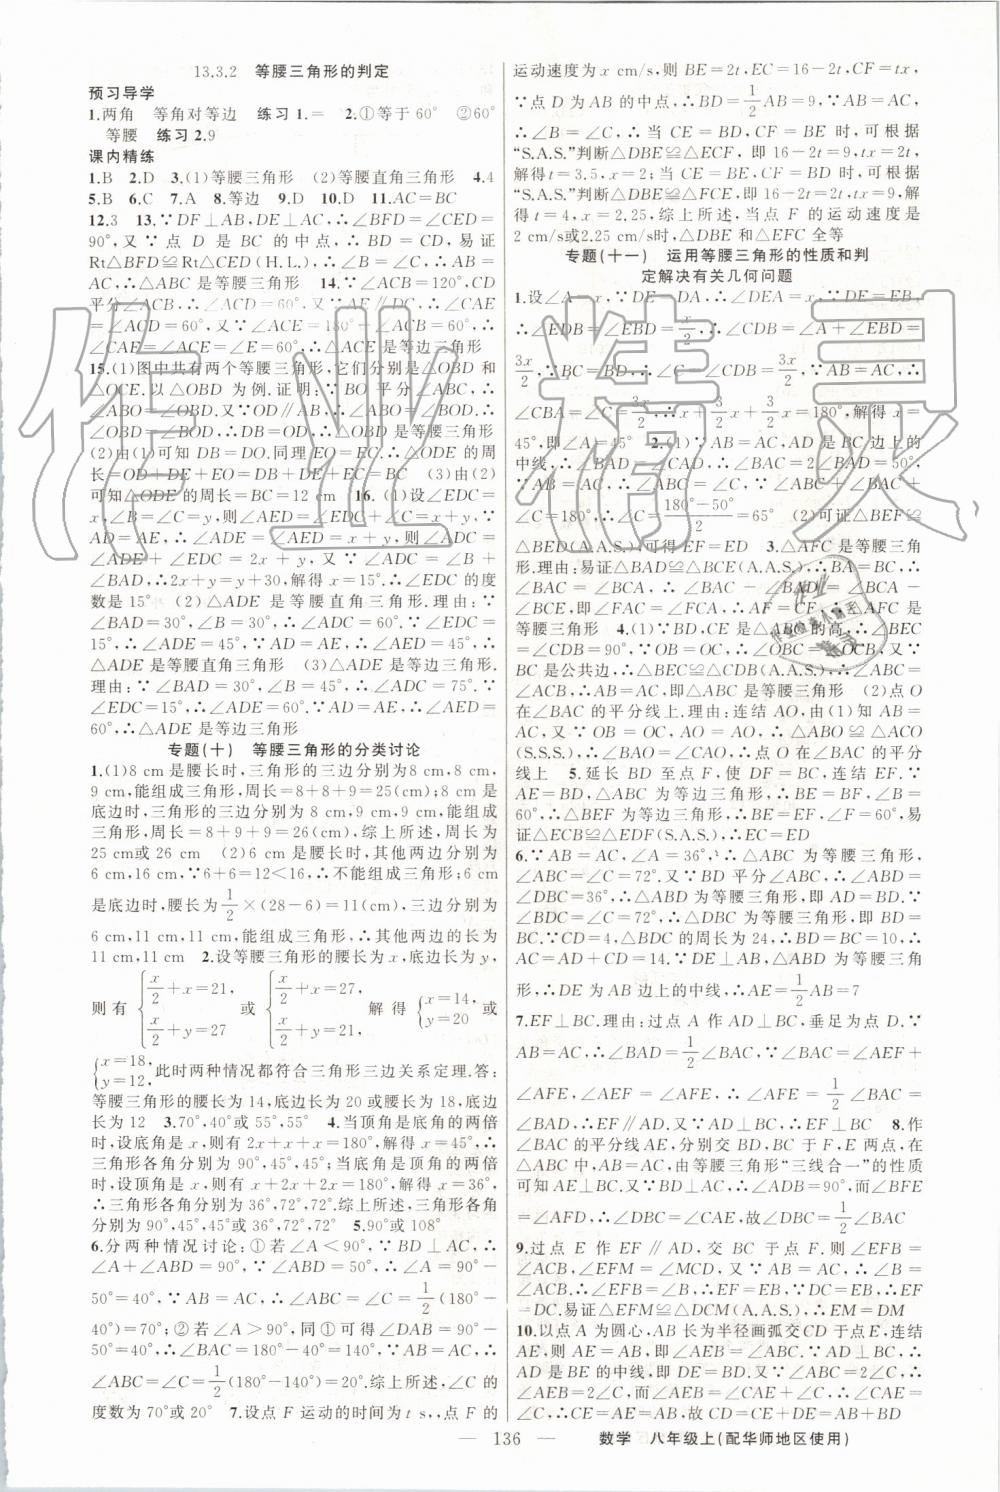 13.3.2 等腰三角形的判定
预习导学
1.两角 等角对等边 练习1.= 2.①等于60° ②60°
等腰 练习2.9
课内精练
1.B 2.D 3.(1)等腰三角形 (2)等腰直角三角形 4.4
5.B 6.C 7.A 8.等边 9.D 10.D 11.AC=BC
12.3 13.∵DF⊥AB,DE⊥AC,∴∠BFD=∠CED=
90°,又∵点D是BC的中点,∴BD=CD,易证
Rt△BFD≌Rt△CED(H.L.),∴∠B=∠C,∴AB=
AC,∴△ABC是等腰三角形 14.∵∠ACB=120°,CD
平分∠ACB,∴∠ACD=60°,又∵AE∥DC,∴∠CAE
=∠ACD=60°,又∵∠ACE=180°-∠ACB=60°,∴
∠CAE=∠ACE=∠E=60°,∴△ACE是等边三角形
15.(1)图中共有两个等腰三角形,它们分别是△OBD和
△OCE.以△OBD为例.证明:∵BO平分∠ABC,∴
∠ABO=∠OBD.又∵OD∥AB,∴∠ABO=∠BOD.∴
∠OBD=∠BOD,∴BD=OD.∴△OBD是等腰三角形
(2)由(1)可知DB=DO.同理EO=EC.∴△ODE的周
长=OD+DE+EO=DB+DE+EC=BC (3)由(2)
可知△ODE的周长=BC=12 cm 16.(1)设∠EDC=
x,∠B=∠C=y,则∠AED=∠EDC+∠C=x+y,∵
AD=AE,∴∠ADE=∠AED=x+y,则∠ADC=
∠ADE+∠EDC=2x+y,又∵∠ADC=∠B+
∠BAD,∴2x+y=y+30,解得x=15°,∴∠EDC的度
数是15° (2)△ADE是等腰直角三角形.理由:∵
∠BAD=30°,∠B=30°,∴∠ADC=60°,∵∠EDC=
15°,∴∠ADE=45°,∵AD=AE,∴∠AED=45°,∴
△ADE是等腰直角三角形 (3)△ADE是等边三角形.
理由:∵∠BAD=30°,∠B=45°,∴∠ADC=75°.∵
∠EDC=15°,∴∠ADE=60°.∵AD=AE,∴∠AED
=60°,∴△ADE是等边三角形
专题(十) 等腰三角形的分类讨论
1.(1)8 cm是腰长时,三角形的三边分别为8 cm,8 cm,
9 cm,能组成三角形,周长=8+8+9=25(cm);8 cm是
底边时,三角形的三边分别为8 cm,9 cm,9 cm,能组成
三角形,周长=8+9+9=26(cm),综上所述,周长为
25 cm或26 cm (2)6 cm是腰长时,其他两边分别为
6 cm,16 cm,∵6+6=12<16,∴不能组成三角形,6 cm
是底边时,腰长为1/2×(28-6)=11(cm),三边分别为
6 cm,11 cm,11 cm,能组成三角形,∴其他两边的长为
11 cm,11 cm 2.设等腰三角形的腰长为x,底边长为y,
则有{x/2+x=21, x/2+y=27 或{x/2+x=27, x/2+y=21, 解得{x=14, y=20 或
{x=18, y=12, 此时两种情况都符合三角形三边关系定理.答:
等腰三角形的腰长为14,底边长为20或腰长为18,底边长
为12 3.70°,40°或55°,55° 4.当顶角是底角的两倍
时,设底角是x,则有2x+x+x=180°,解得x=45°,∴
三角形各角分别为90°,45°,45°;当底角是顶角的两倍
时,设顶角是x,则有x+2x+2x=180°,解得x=36°,
∴三角形各角分别为36°,72°,72°.综上所述,三角形各角
分别为90°,45°,45°或36°,72°,72° 5.90°或108°
6.分两种情况讨论:①若∠A<90°,∵BD⊥AC,∴
∠A+∠ABD=90°,∵∠ABD=50°,∴∠A=90°-
50°=40°,∵AB=AC,∴∠ABC=∠C=1/2(180°-
40°)=70°;②若∠A>90°,同①可得∠DAB=90°-
50°=40°,∴∠BAC=180°-40°=140°,∵AB=AC,∴
∠ABC=∠C=1/2(180°-140°)=20°.综上所述,∠C的
度数为70°或20° 7.设点F运动的时间为t s,点F的
运动速度为x cm/s,则BE=2t,EC=16-2t,CF=tx,
∵点D为AB的中点,∴BD=1/2AB=9,∵AB=AC,
∴∠B=∠C,∴当CE=BD,CF=BE时,可根据
“S.A.S.”判断△DBE≌△ECF,即16-2t=9,tx=2t,
解得t=3.5,x=2;当CE=BE,CF=BD时,可根据
“S.A.S.”判断△DBE≌△FCE,即16-2t=2t,tx=9,
解得t=4,x=2.25,综上所述,当点F的运动速度是
2 cm/s或2.25 cm/s时,△DBE和△EFC全等
专题(十一) 运用等腰三角形的性质和判
定解决有关几何问题
1.设∠A=x,∵DE=DA,∴∠DEA=x,∵DE=EB,
∴∠EDB=∠EBD=x/2,∴∠CDB=∠A+∠EBD=
3x/2,∵BC=BD,∴∠C=∠CDB=3x/2,∵AB=AC,∴
∠CBA=∠C=3/2x,∴x+3/2x+3/2x=180°,解得x=
45°,即∠A=45° 2.(1)∵AB=AC,AD是BC边上的
中线,∴∠BAD=∠CAD,∴∠BAC=2∠BAD=50°,
∵AB=AC,∴∠ABC
=∠C=(180°-50°)/2=65° (2)可证△BEF≌
△BED(A.A.S.),可得EF=ED 3.△AFC是等腰三角
形.理由:易证△BAD≌△BCE(A.A.S.),∴BA=BC,∴
∠BAC=∠BCA,∴∠BAC-∠BAD=∠BCA-
∠BCE,即∠FAC=∠FCA,∴AF=CF,∴△AFC是
等腰三角形 4.(1)∵BD,CE是△ABC的高,∴∠BEC
=∠CDB=90°,∵OB=OC,∴∠OBC=∠OCB,又∵
BC是公共边,∴△BEC≌△CDB(A.A.S.),∴∠ABC=
∠ACB,∴AB=AC,即△ABC是等腰三角形 (2)点O
在∠BAC的平分线上.理由:连结AO,由(1)知AB=
AC,又∵OB=OC,AO=AO,∴△ABO≌△ACO
(S.S.S.),∴∠BAO=∠CAO,∴点O在∠BAC的平分
线上 5.延长BD至点F,使DF=BC,连结EF.∵
AE=BD,△ABC为等边三角形,∴BE=BF,∠B=
60°,∴△EBF为等边三角形,∴BE=EF,∠F=60°,易
证△ECB≌△EDF(S.A.S.),∴EC=ED
6.∵AB=AC,∠A=36°,∴△ABC为等腰三角形,
∠ABC=∠C=72°.又∵BD平分∠ABC,∴∠ABD=
∠DBC=36°,∴△ABD为等腰三角形,即AD=BD.∵
∠BDC=∠C=72°,∴△BDC为等腰三角形,即BD=
BC.∵CD=4,△BDC的周长为24,∴BD=BC=10,∴
AC=AD+CD=14.∵DE⊥AB,△ABD为等腰三角
形,∴DE为AB边上的中线,∴AE=1/2AB=7
7.EF⊥BC.理由:过点A作AD⊥BC,垂足为点D.∵
AB=AC,∴∠BAD=1/2∠BAC,∵∠BAC=∠AEF+
∠AFE,∠AEF=∠AFE,∴∠AEF=1/2∠BAC=
∠BAD,∴EF∥AD.又∵AD⊥BC,∴EF⊥BC 8.作
∠BAC的平分线AE,分别交BD,BC于F,E两点,在
△ABC中,AB=AC,由等腰三角形“三线合一”的性质
可知AE⊥BC,又∵BD⊥AC,∴∠ADB=90°,而∠BFE
=∠AFD,∴∠DBC=∠CAE,故∠DBC=1/2∠BAC
9.过点E作EF∥AD,交BC于点F,则∠EFB=
∠ACB,∠EFM=∠MCD,又∵AB=AC,∴∠B=
∠ACB,∴∠B=∠EFB,∴EF=EB,∵DC=EB,∴EF
=DC.易证△EFM≌△DCM(A.A.S.),∴EM=DM
10.以点A为圆心,AB长为半径画弧交CD于点E,连结
AE,则AE=AB,∴∠ABE=∠AEB.∵AD⊥BC,∴
AD是BE的中线,即DE=BD.又∵∠ABC=2∠C,∴
∠AEB=2∠C.∵∠AEB=∠CAE+∠C,∴∠CAE=
∠C,∴CE=AE=AB,故CD=CE+DE=AB+BD
— 136 — 数学 八年级上(配华师地区使用)
作业精灵